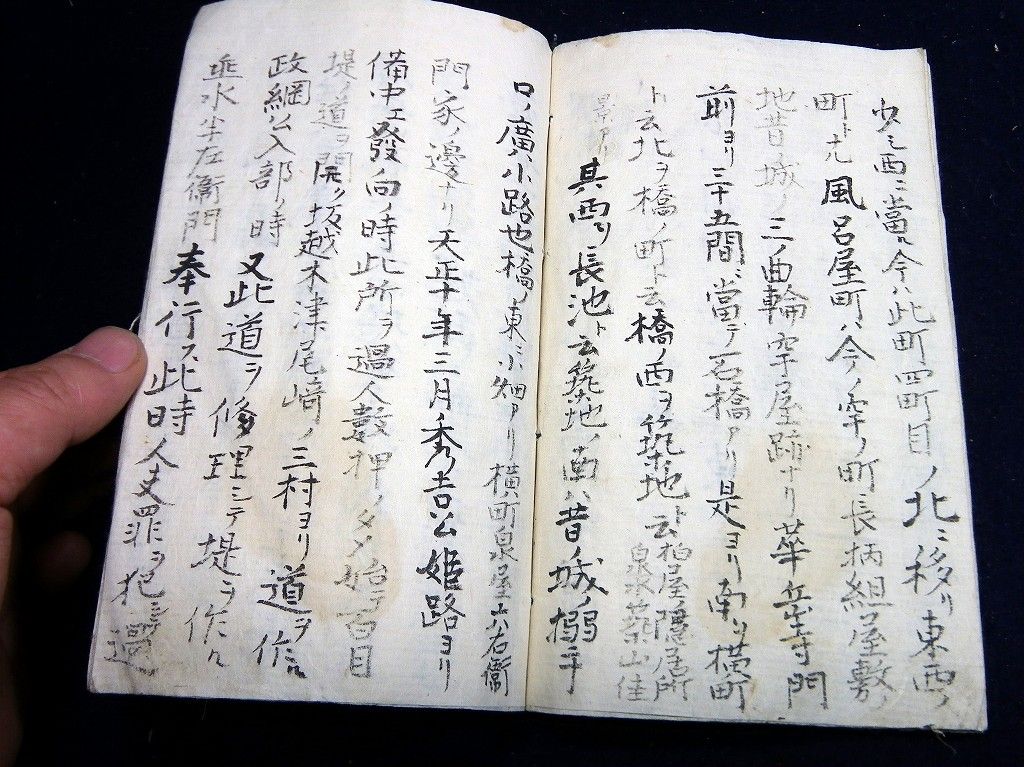 少シ西ニ當ル今ハ此町四町目ノ北ニ移リ東西ノ
町ト九風呂屋町ハ今ノ牢ノ町長柄組屋敷ノ
地昔城ノ三ノ曲輪牢屋跡ナリ華岳寺門
前ヨリ三十五間ニ當テ石橋アリ是ヨリ南ヲ横町
ト云北ヲ橋ノ町ト云橋ノ西ヲ築地ト云柏屋ノ隠居所
泉水築山佳
景アリ
其西ヲ長池ト云築地ノ南ハ昔ノ城ノ搦手
口ノ廣小路也橋ノ東ニ小畑アリ横町泉屋六右衛
門家ノ邊ナリ天正十年三月秀吉公姫路ヨリ
備中エ發向ノ時此所ヲ過人數押ノタメ始テ百目
堤ノ道ヲ開ク坂越木津尾崎ノ三村ヨリ道ヲ作ル
政綱公入部ノ時又此道ヲ修理シテ堤ヲ作ル
垂水半左衛門奉行ス此時人丈罪ヲ犯
過